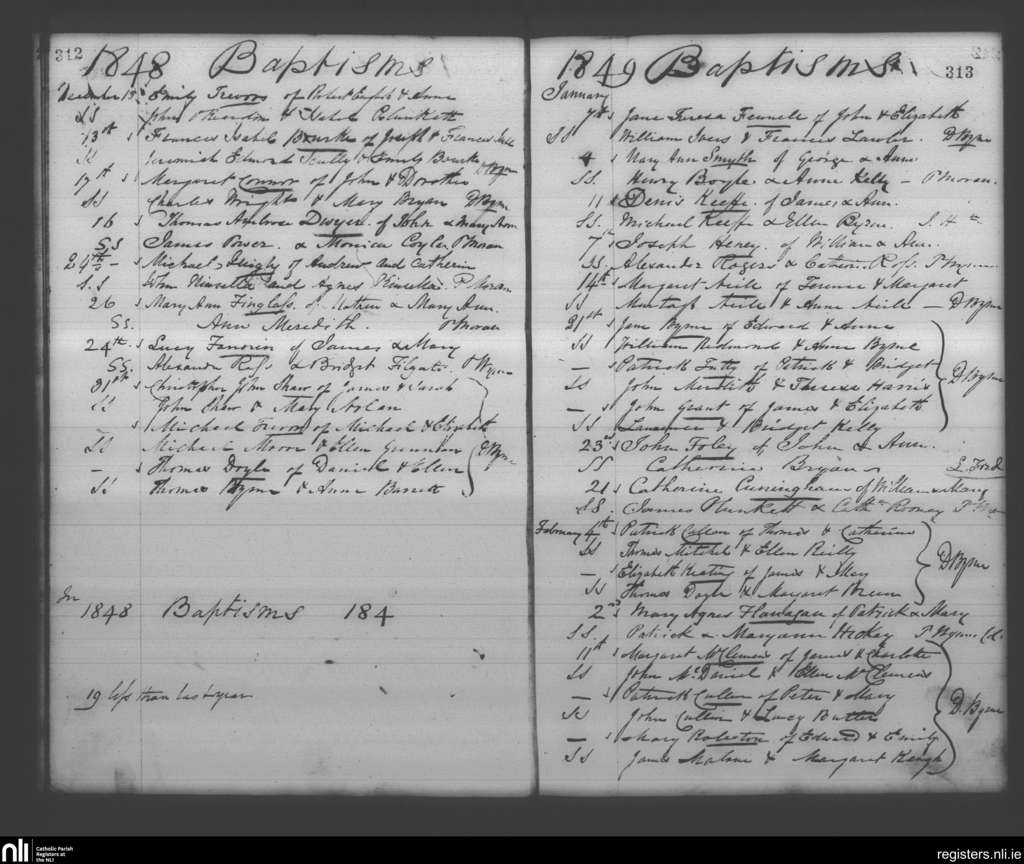 312
1848 Baptisms
December 13 s Emily Trevors of Robert English & Anne
SS John & Isabela Plunkett
13th s Frances Isabel Bourke of Joseph & Frances
SS Jeremiah Edmond Scully & Emily Bourke D Byrne
17th s Margaret Connor of John & Dorothea
SS Charles Wright & Mary Bryan D Byrne
16 s Thomas Ambrose Dwyer of John & Mary Ann
SS James Power & Monica Coyle P Moran
24th – Michael of Andrew and Catherin
S.S John Kinsella and Agnes Kinsella P Moran
26 Mary Ann Finglass of Mathew & Mary Ann
Ss. Ann Meredith. P Moran
24th s Lucy of James & Mary
SS. Alexander Ross & Bridget
31st Christopher John Shaw of James & Sarah
SS John Shaw & Mary Nolan
s Michael of Michael & Elizabeth
SS Michael Moore & Ellen D Byrne
– s Thomas Doyle of Daniel & Ellen
SS Thomas Byrne & Anne Barrett
In
1848 Baptisms 184
19 less than last year
1849 Baptisms
313
January
7th s Jane Teresa Fennell of John & Elizabeth
SS William Ivers & Frances Lawler D Byrne
4 s Mary Ann Smyth of George & Ann
SS. Henry Boyle & Anne Kelly – P Moran.
11 s Denis Keeffe of James & Ann.
SS. Michael Keeffe & Ellen Byrn.
7th s Joseph Heney of William & Ann.
SS. Alexander Rogers & Cathrin Ross.
14th s Margaret of Terence & Margaret
SS & Anne – D Byrne
21st s Jane Byrne of Edward & Anne
SS William Redmond & Anne Byrne
– s Patrick of Patrick & Bridget
SS John Meredith & Theresa Harris D Byrne
– s John Grant of James & Elizabeth
SS Lawrence & Bridget Kelly
23rd s John Foley of John & Ann.
SS Catherine Bryan
21 s Catherine Cunningham of William & Mary
SS. James Plunkett & Cathe Rooney
February 4th s Patrick Cullen of Thomas & Catherine
SS Thomas Mitchel & Ellen Reilly
– s Elizabeth Keating of James & Mary D Byrne
SS Thomas Doyle & Margaret
2nd s Mary Agnes Flanagan of Patrick & Mary
SS. Patrick & Maryanne Hickey
11th s Margaret McClemens of James & Charlotte
SS John McDaniel & Ellen McClemens
– s Patrick Cullen of Peter & Mary D. Byrne
SS John Cullen & Lucy Butler
– s Mary of Edward & Emily
SS James Malone & Margaret Keogh
nli
Catholic Parish
Registers at
the NLI
registers.nli.ie